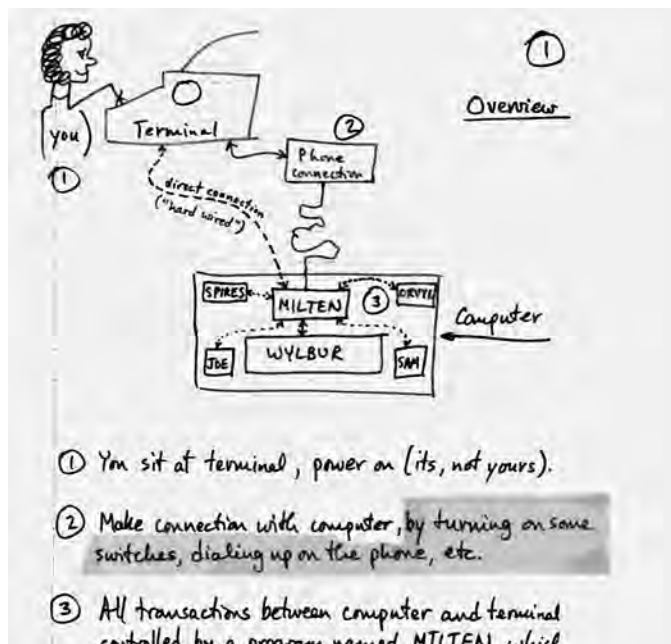 ①
Overview
(you)
①
Terminal
②
Phone
connection
direct connection
("hard wired")
SPIRES
MILTEN
③
ORVYL
Computer
JOE
WYLBUR
SAM
① You sit at terminal, power on (its, not yours).
② Make connection with computer, by turning on some
switches, dialing up on the phone, etc.
③ All transactions between computer and terminal
controlled by a program named MILTEN which